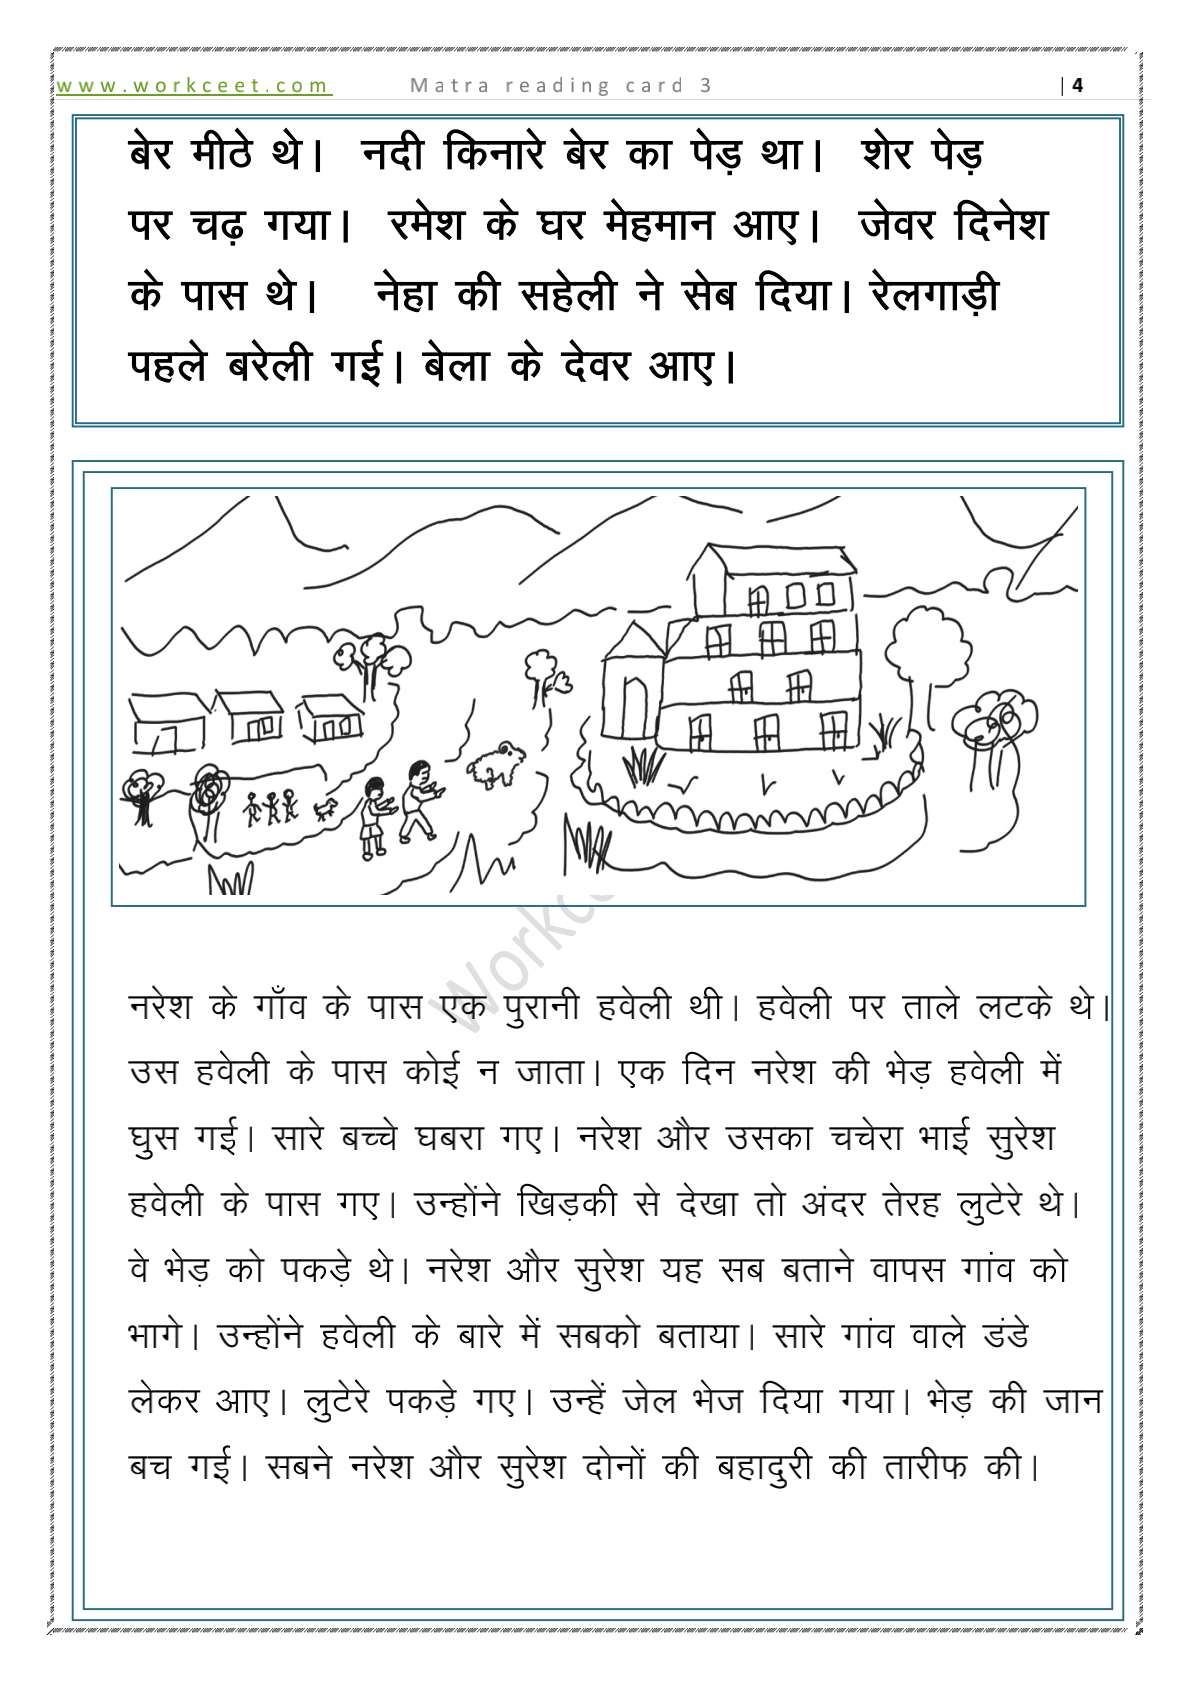 www.workceet.com Matra reading card 3 | 4
बेर मीठे थे। नदी किनारे बेर का पेड़ था। शेर पेड़
पर चढ़ गया। रमेश के घर मेहमान आए। जेवर दिनेश
के पास थे। नेहा की सहेली ने सेब दिया। रेलगाड़ी
पहले बरेली गई। बेला के देवर आए।
नरेश के गाँव के पास एक पुरानी हवेली थी। हवेली पर ताले लटके थे।
उस हवेली के पास कोई न जाता। एक दिन नरेश की भेड़ हवेली में
घुस गई। सारे बच्चे घबरा गए। नरेश और उसका चचेरा भाई सुरेश
हवेली के पास गए। उन्होंने खिड़की से देखा तो अंदर तेरह लुटेरे थे।
वे भेड़ को पकड़े थे। नरेश और सुरेश यह सब बताने वापस गांव को
भागे। उन्होंने हवेली के बारे में सबको बताया। सारे गांव वाले डंडे
लेकर आए। लुटेरे पकड़े गए। उन्हें जेल भेज दिया गया। भेड़ की जान
बच गई। सबने नरेश और सुरेश दोनों की बहादुरी की तारीफ की।